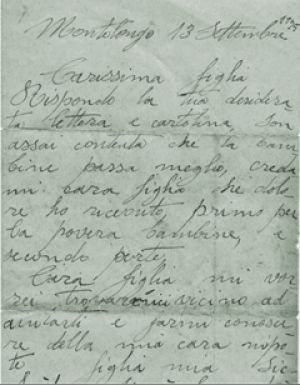 Montelongo 13 Settembre
Carissima figlia
Rispondo la tua desidera
ta lettera e cartolina son
assai contenta che la bam
bine passa meglio, creda
mi cara figlia che dolo
re ho ricevuto, primo per
la povera bambine, e
secondo per te,
Cara figlia mi vor
rei trovarmi vicino ad
aiutarti e farmi conosce
re della mia cara nipo
te figlia mia